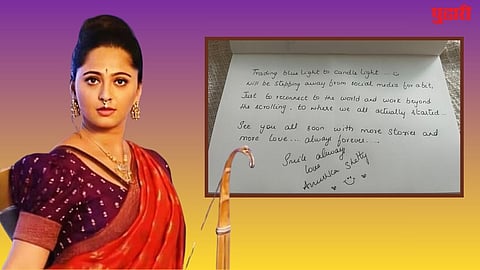 पुढारी
Trading blue light to candle light...
will be stepping away from social media for a bit,
Just to reconnect to the world and work beyond
the scrolling.. to where we all actually started...
See you all soon with more stories and
more love.... always forever....
Smile always
love
Anushka Shetty